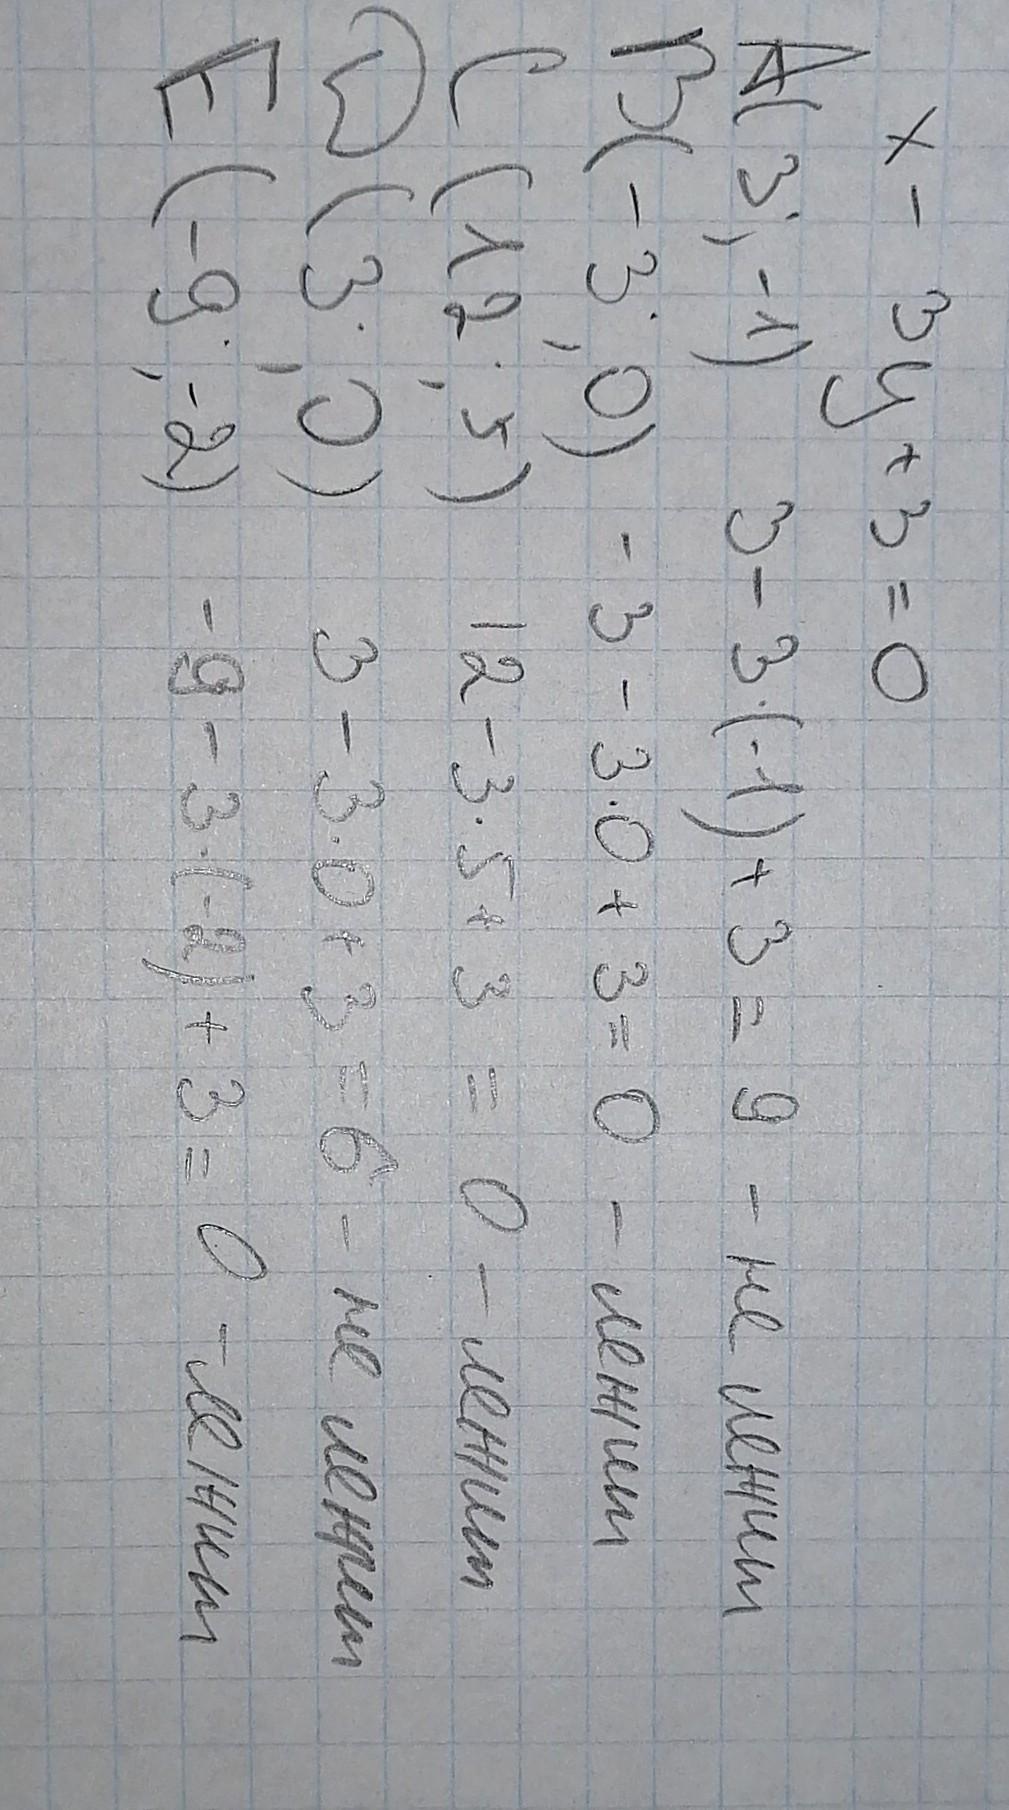 x - 3y + 3 = 0
A(3; -1) 3 - 3·(-1) + 3 = 9 - не лежит
B(-3; 0) -3 - 3·0 + 3 = 0 - лежит
C(12; 5) 12 - 3·5 + 3 = 0 - лежит
D(3; 0) 3 - 3·0 + 3 = 6 - не лежит
E(-9; -2) -9 - 3·(-2) + 3 = 0 - лежит